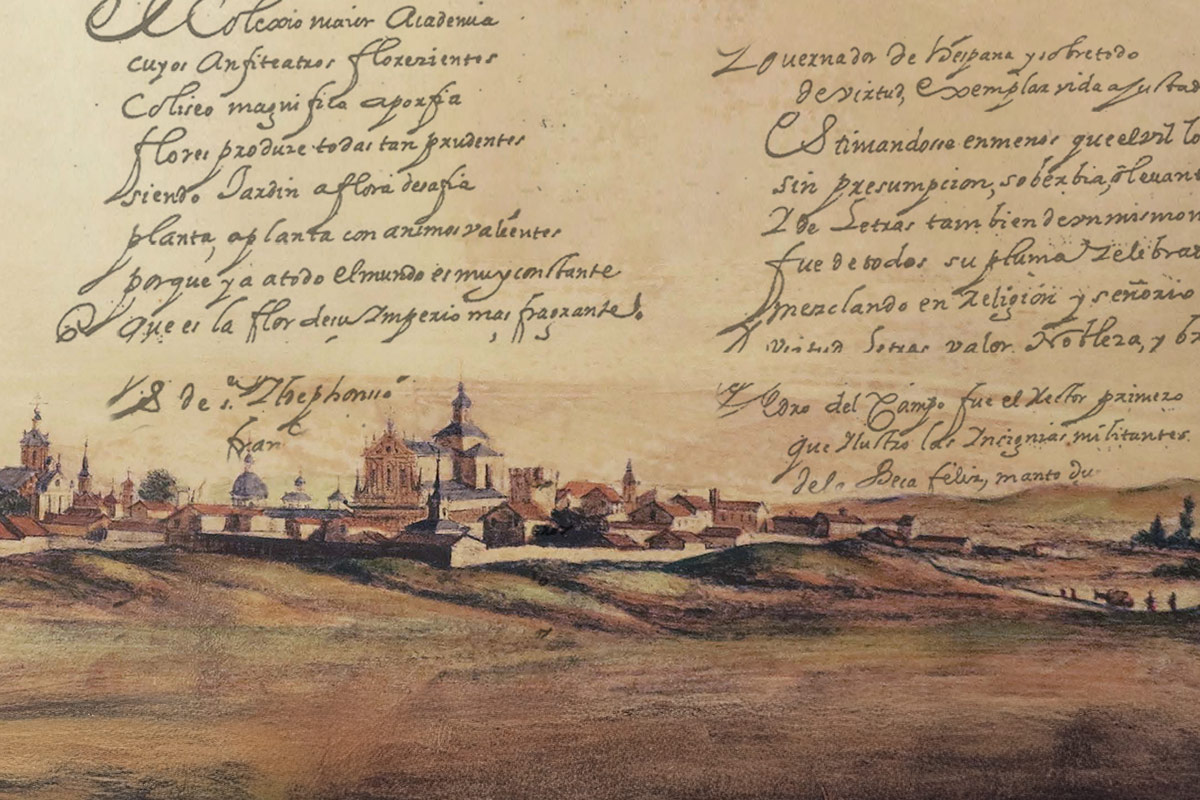 El Colexio maior Academia
cuyos Anfiteatros florezientes
Coliseo magnifica aporfia
flores produze todas tan prudentes
siendo Jardin a flora desafia
planta, a planta con animos valientes
porque ya atodo el mundo es muy constante
que es la flor de su Imperio mas fragrante.
S de s. Ildephonso
fran
Governador de Hespana y sobre todo
de virtud, Exemplar vida a
EStimandose en menos que el vil lo
sin presumpcion, soberbia, o levant
I de Letras tambien de un mismo
fue de todos su pluma Zelebra
mezclando en Religion y señorio
virtud letras valor. Nobleza, y
Pedro del Campo fue el Rector primero
que Ilustro las Insignias militantes
de la Beca feliz, manto du